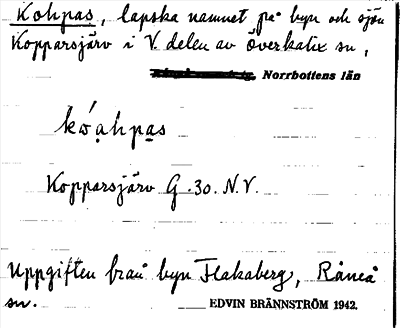 Kohpas, lapska namnet på byn och sjön
Kopparsjärv i V. delen av Överkalix sn,
Norrbottens län
kóạhpạs
Kopparsjärv G. 30. N.V.
Uppgiften från byn Flakaberg, Råneå
sn.
EDVIN BRÄNNSTRÖM 1942.